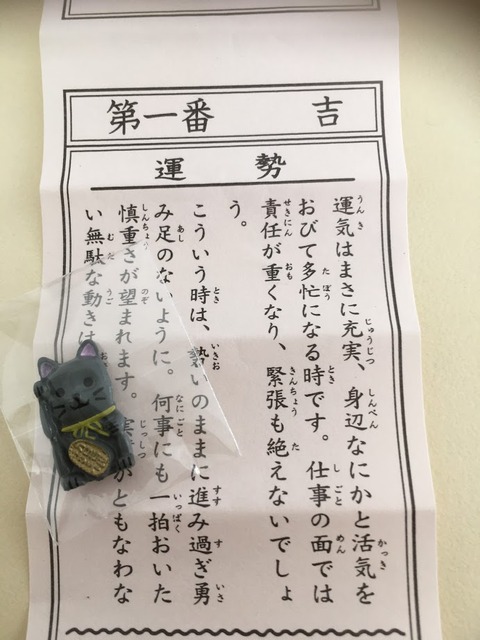 第一番 吉
運勢
運気はまさに充実、身辺なにかと活気を
おびて多忙になる時です。仕事の面では
責任が重くなり、緊張も絶えないでしょ
う。
こういう時は、勢いのままに進み過ぎ勇
み足のないように。何事にも一拍おいた
慎重さが望まれます。実がともなわな
い無駄な動きは